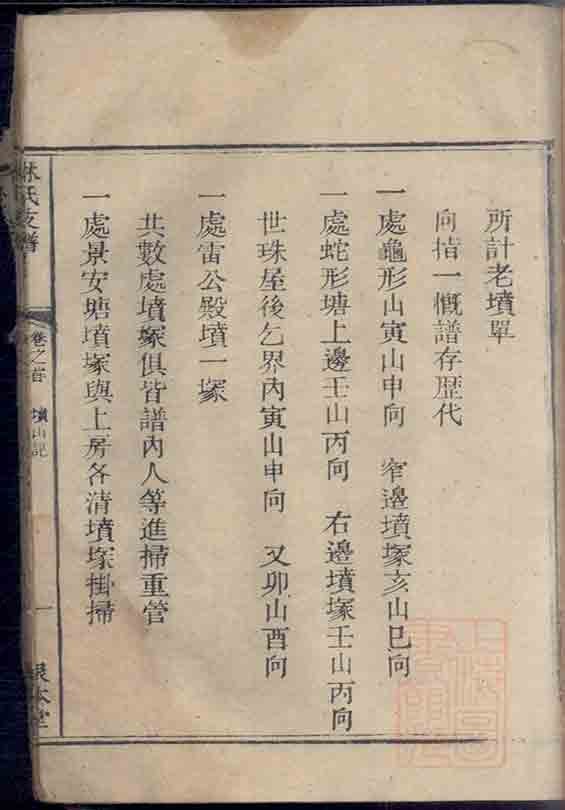 所計老墳單
向揹一慨譜存歴代
一處龜形山寅山申向　窄邊墳塚亥山巳向
一處蛇形塘上邊壬山丙向　右邊墳塚壬山丙向
世珠屋後乞界內寅山申向　又卯山酉向
一處雷公殿墳一塚
共數處墳塚俱皆譜內人等進掃重管
一處景安塘墳塚與上房各清墳塚掛掃
林氏支譜
卷之首　墳山記
一
本堂